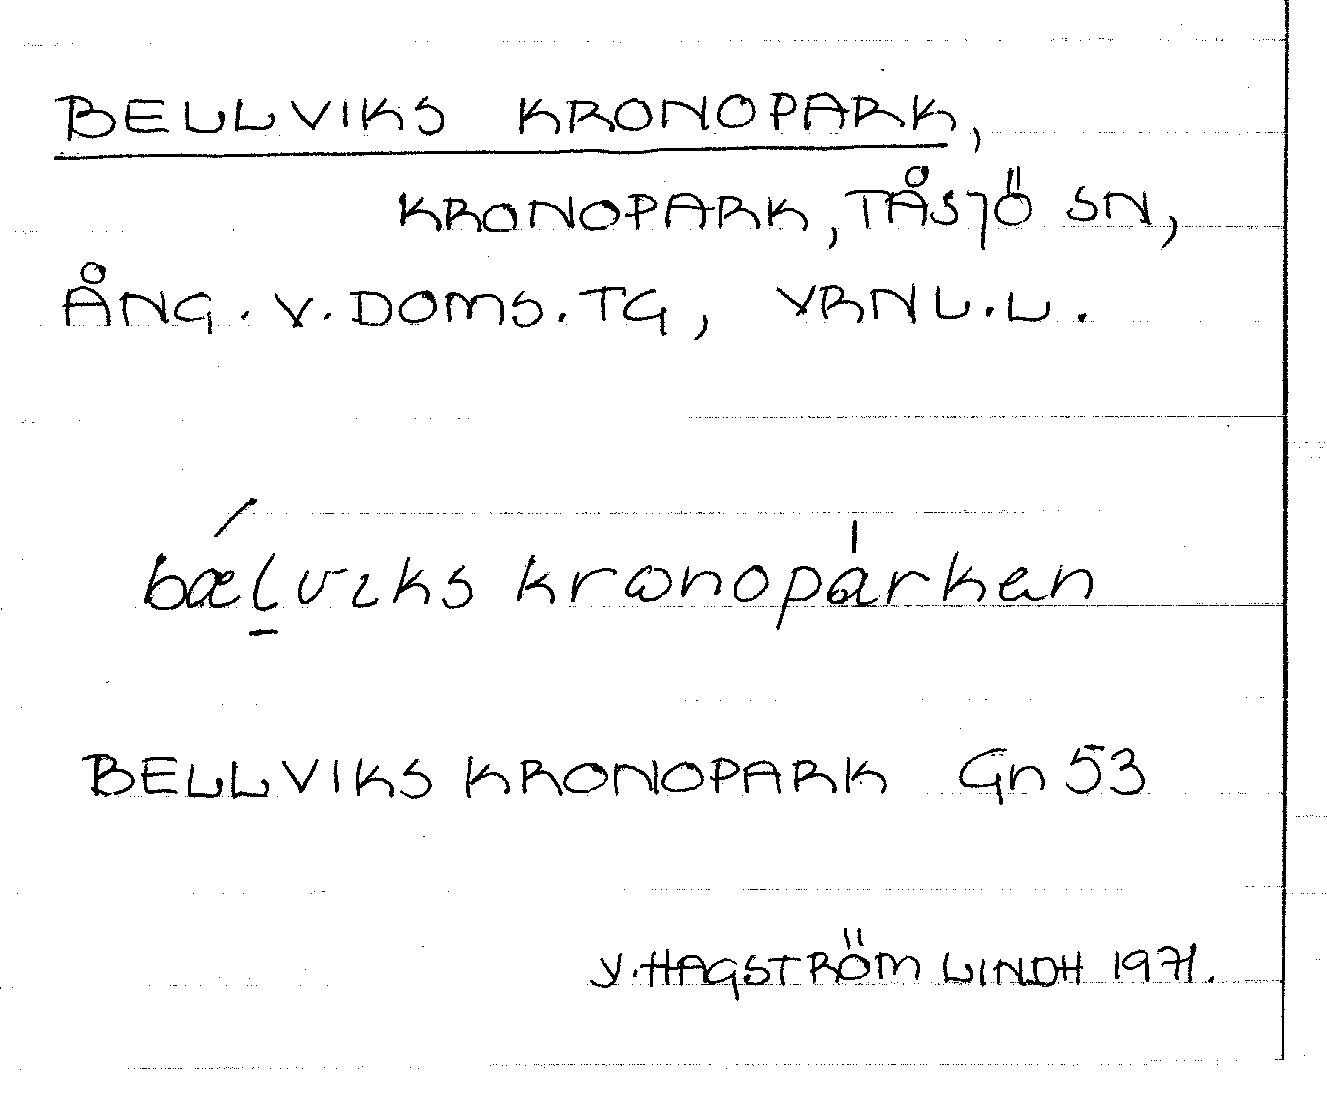 BELLVIKS KRONOPARK,
KRONOPARK, TÅSJÖ SN,
ÅNG. V. DOMS. TG, VRNL.L.
bæl̠vɩks krωnopárken
BELLVIKS KRONOPARK Gn 53
Y. HAGSTRÖM LINDH 1971.